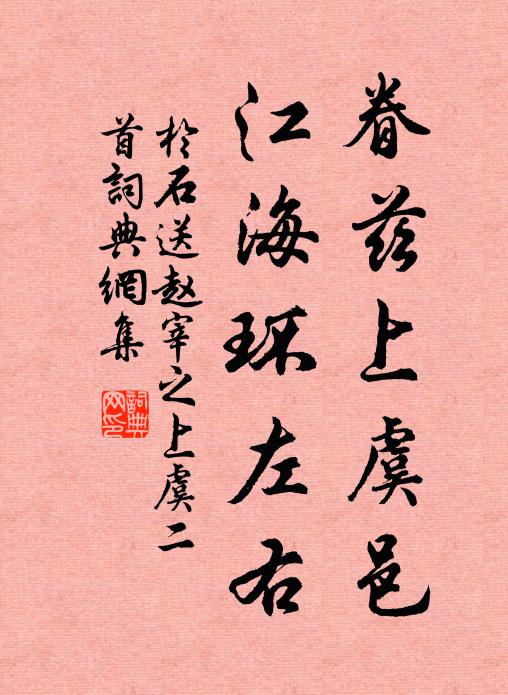 眷茲上虞邑
江海环左右
於石送赵宰之上虞二
首詞典網集
詞典
网印